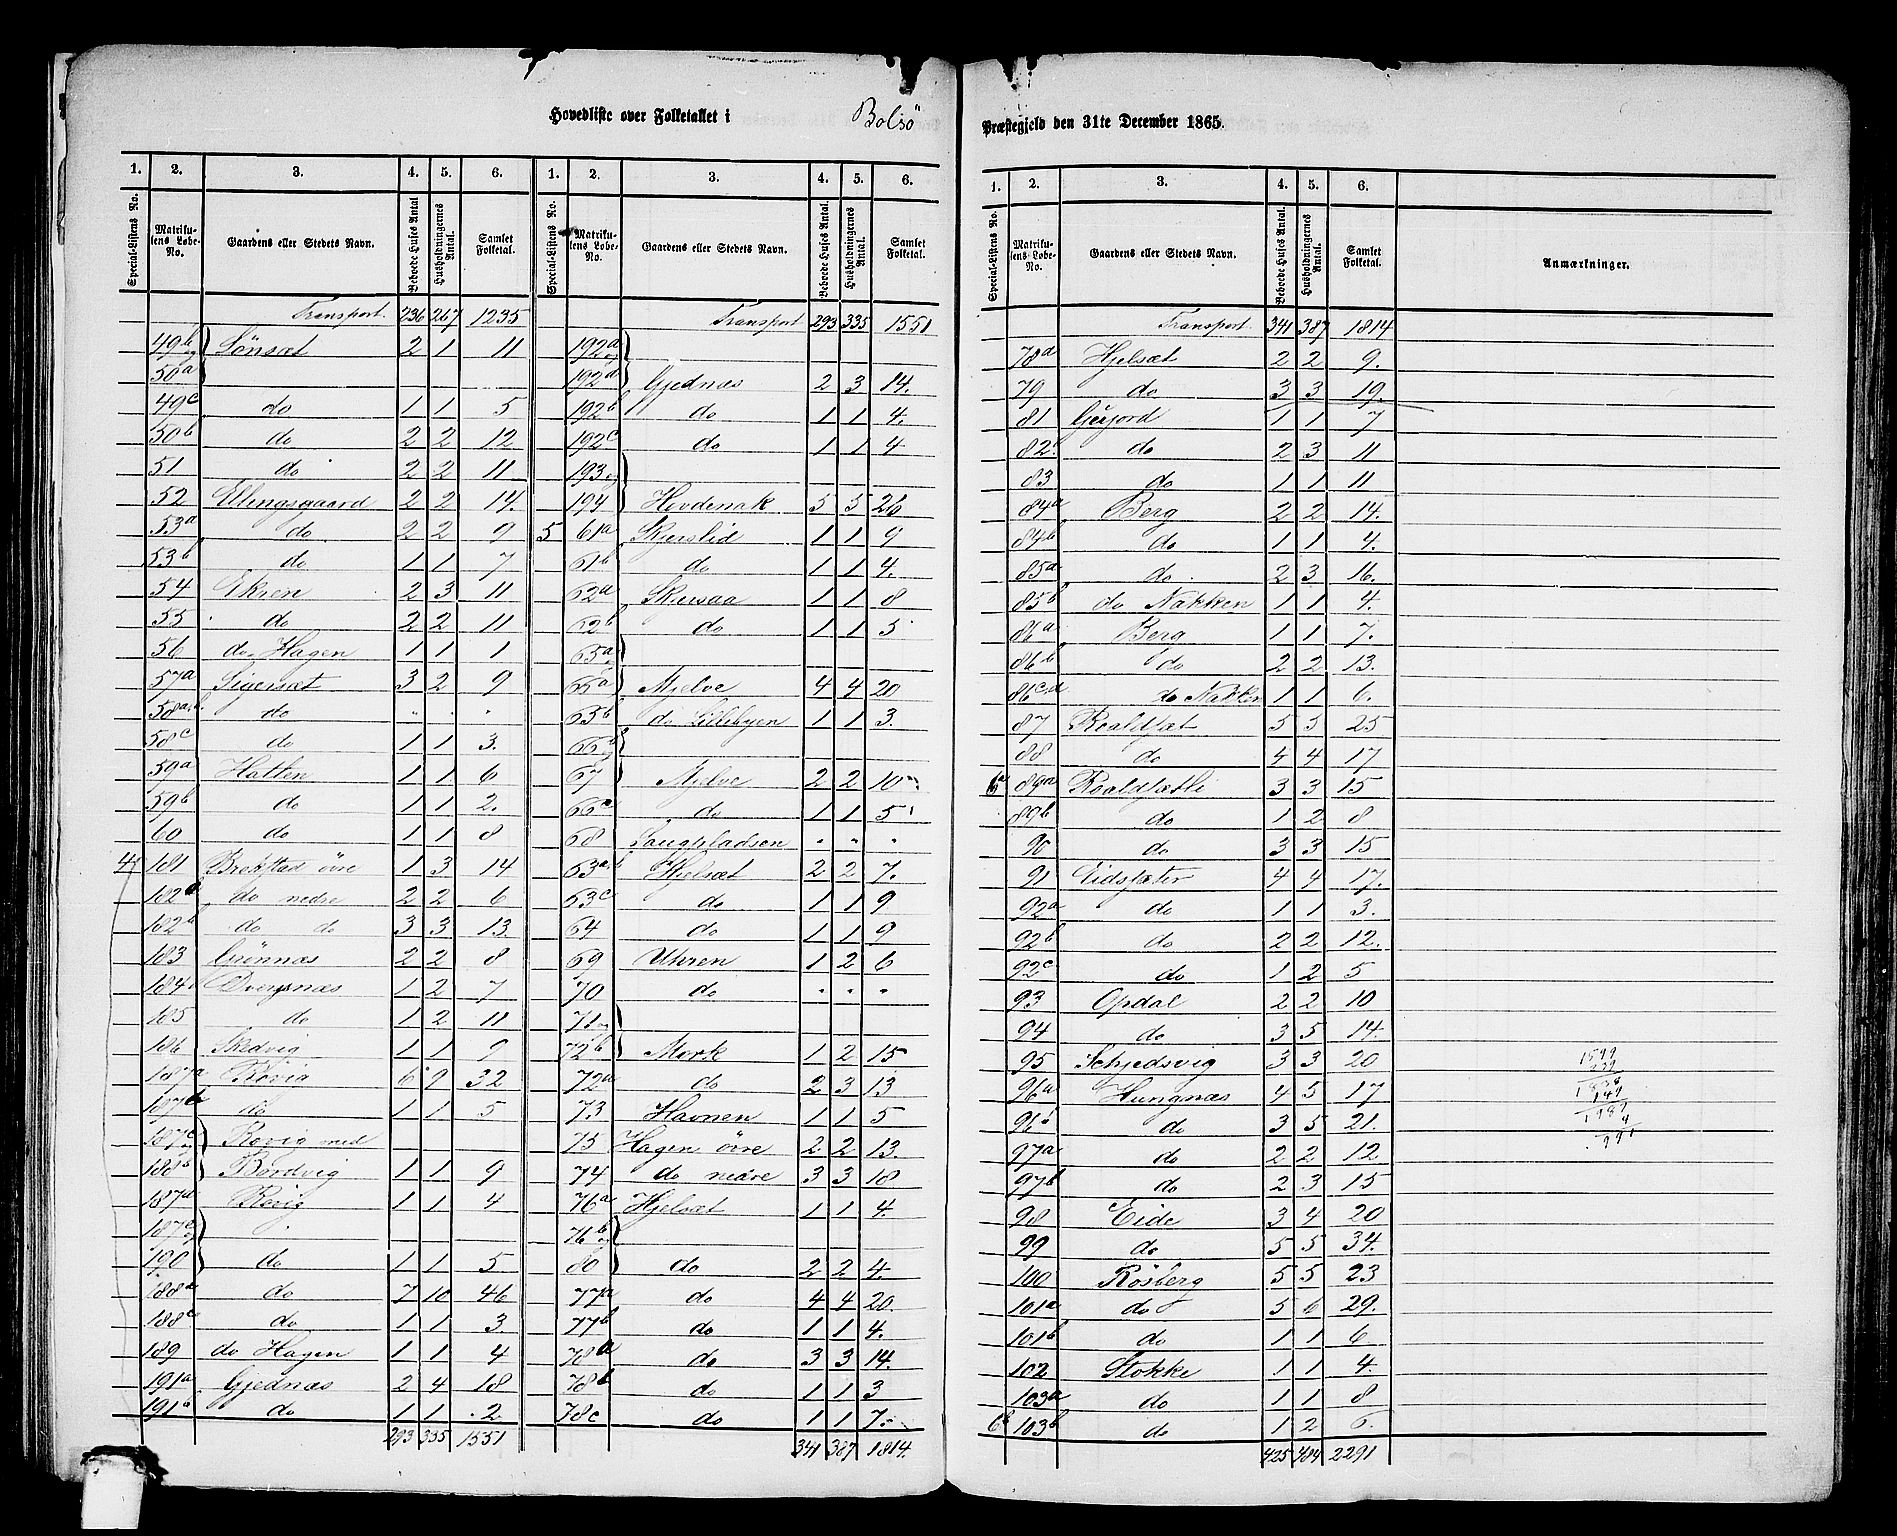 Hovedliste over Folketallet i Bolsø Præstegjeld den 31te December 1865.
1. 2. 3. 4. 5. 6.
Special-Listens No. Matrikulens Løbe-No. Gaardens eller Stedets Navn. Beboede Huses Antal Husholdningernes Antal. Samlet Folketal.
Transport. 236 267 1235
49b og 50a Sönsæt 2 1 11
49c do 1 1 5
50b do 2 2 12
51 do 2 2 11
52 Ellingsgaard 2 2 14.
53a do 2 2 9
53b do 1 1 7
54 Ekren 2 3 11
55 do 2 2 11
56 do Hagen 1 1 1
57a Sigersæt 3 2 9
58a do " " "
58c do 1 1 3.
59a Hatten 1 1 6
59b do 1 1 2.
60 do 1 1 8
4 181 Brekstad övre 1 3 14
182a do nedre 2 2 6
182b do do 3 3 13.
183 Grönnæs 2 2 8
184 Dvergsnæs 1 2 7
185 do 1 2 11
186 Skedvig 1 1 9
187a Rövig 6 9 32
187b do 1 1 5
187c og Rövig med
188b Bordvig 1 1 9
187d Rövig 1 1 4
187e og
190 do 1 1 5
188a do 7 10 46
188c do 1 1 3.
189 do Hagen 1 1 4
191a Gjednæs 2 4 18
191b do 1 1 2
293 335 1551
1. 2. 3. 4. 5. 6.
Special-Listens No. Matrikulens Løbe-No. Gaardens eller Stedets Navn. Beboede Huses Antal. Husholdningernes Antal. Samlet Folketal.
Transport 293 335 1551
192a og
192d Gjednæs 2 3 14.
192b do 1 1 4.
192c do 1 1 4
193 og
194 Hovdenak 5 5 26
5 61a Skjerslid 1 1 9
61b do 1 1 4.
62a Skjersaa 1 1 8
62b do 1 1 5
65a og
66a Mjelve 4 4 20
65b do Lillebyen 1 1 3.
66b og
67 Mjelve 2 2 10
66c do 1 1 5
68 Saugpladsen " " "
63a b Hjelsæt 2 2 7.
63c do 1 1 9
64 do 1 1 9
69 Uhren 1 2 6
70 do " " "
71 og
72b Mork 1 2 15
72a do 2 3 13
73 Havnen 1 1 5
75 Hagen övre 2 2 13.
74 do nedre 3 3 18
76a Hjelsæt 1 1 4.
76b og
80 do 2 2 4.
77a do 4 4 20.
77b do 1 1 4.
78a do 3 3 14.
78b do 1 1 3
78c do 1 1 7
341 387 1814.
1. 2. 3. 4. 5. 6.
Special-Listens No. Matrikulens Løbe-No. Gaardens eller Stedets Navn. Beboede Huses Antal. Husholdningernes Antal. Samlet Folketal. Anmærkninger.
Transport. 341 387 1814
78d Hjelsæt 2 2 9.
79 do 3 3 19.
81 Gujord 1 1 7
82 do 2 3 11
83 do 1 1 11
84a Berg 2 2 14.
84b do 1 1 4.
85a do 2 3 16.
85b do Nakken 1 1 4.
86a Berg 1 1 7.
86b do 2 2 13.
86c,d do Nakken 1 1 6.
87 Roaldsæt 5 5 25
88 do 4 4 17
6a 89a Roaldsætli 3 3 15
89b do 1 2 8
90 do 3 3 15
91 Eidssæter 4 4 17.
92a do 1 1 3.
92b do 2 2 12.
92c do 1 2 5
93 Opdal 2 2 10
94 do 3 5 14.
95 Schjedsvig 3 3 20
96a Hungnæs 4 5 17
96b do 3 5 21.
97a do 2 2 12
97b do 2 3 15
98 Eide 3 4 20
99 do 5 5 34.
100 Rösberg 5 5 23
101a do 5 6 29.
101b do 1 1 6
102 Stokke 1 1 4.
103a do 1 1 8
6b 103b do 1 2 6.
425 484 2291